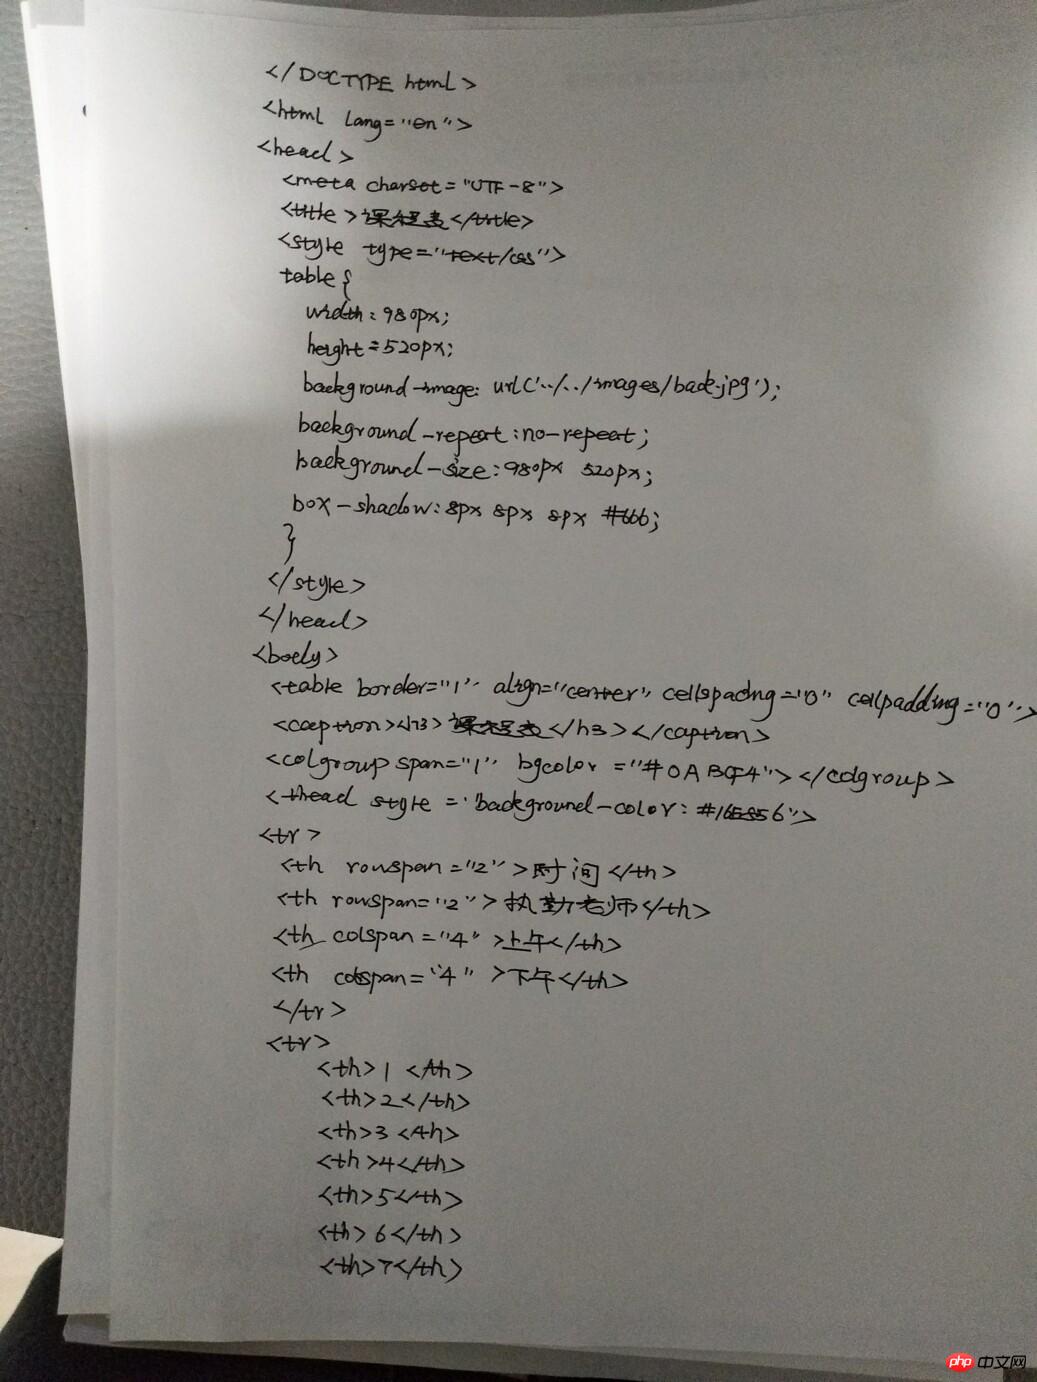 </DOCTYPE html>
<html lang="en">
<head>
<meta charset="UTF-8">
<title>课程表</title>
<style type="text/css">
table{
width:980px;
height=520px;
background-image: url('../../images/back.jpg');
background-repeat:no-repeat;
background-size:980px 520px;
box-shadow:8px 8px 8px #666;
}
</style>
</head>
<body>
<table border="1" align="center" cellspacing="0" cellpadding="0">
<caption><h3>课程表</h3></caption>
<colgroup span="1" bgcolor="#0ABCF4"></colgroup>
<thead style="background-color:
<tr>
<th rowspan="2">时间</th>
<th rowspan="2">执勤老师</th>
<th colspan="4">上午</th>
<th colspan="4">下午</th>
</tr>
<tr>
<th>1</th>
<th>2</th>
<th>3</th>
<th>4</th>
<th>5</th>
<th>6</th>
<th>7</th>
php 中文网